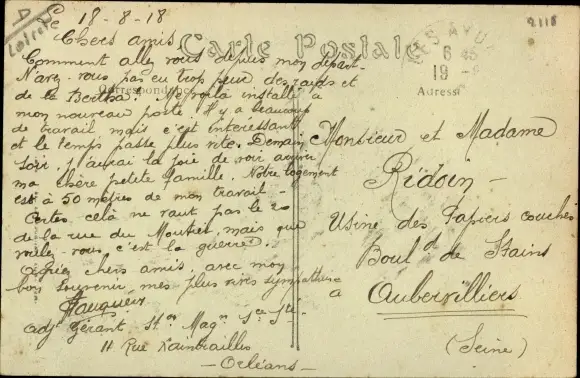 Le 18-8-18
Loiret
2118
Chers amis
Carte Postale
Comment allez vous depuis mon départ
N'avez-vous pas eu trop peur des raids et
Correspondance
Adresse
de la Bertha? Me voilà installé à
mon nouveau poste. Il y a beaucoup
de travail mais c'est intéressant
et le temps passe plus vite. Demain
soir, j'aurai la joie de voir arriver
ma chère petite famille. Notre logement
est à 50 mètres de mon travail -
Certes, cela ne vaut pas le 20
de la rue du Moutier, mais que
voulez-vous, c'est la guerre.
chers amis, avec mon
bon souvenir, mes plus vives sympathies
Adjt Gérant Ston Magn Sce Sté
11 Rue Xaintrailles
- Orléans -
Monsieur et Madame
Ridoin -
Usine des Papiers couchés
Bould de Stains
à Aubervilliers
(Seine)